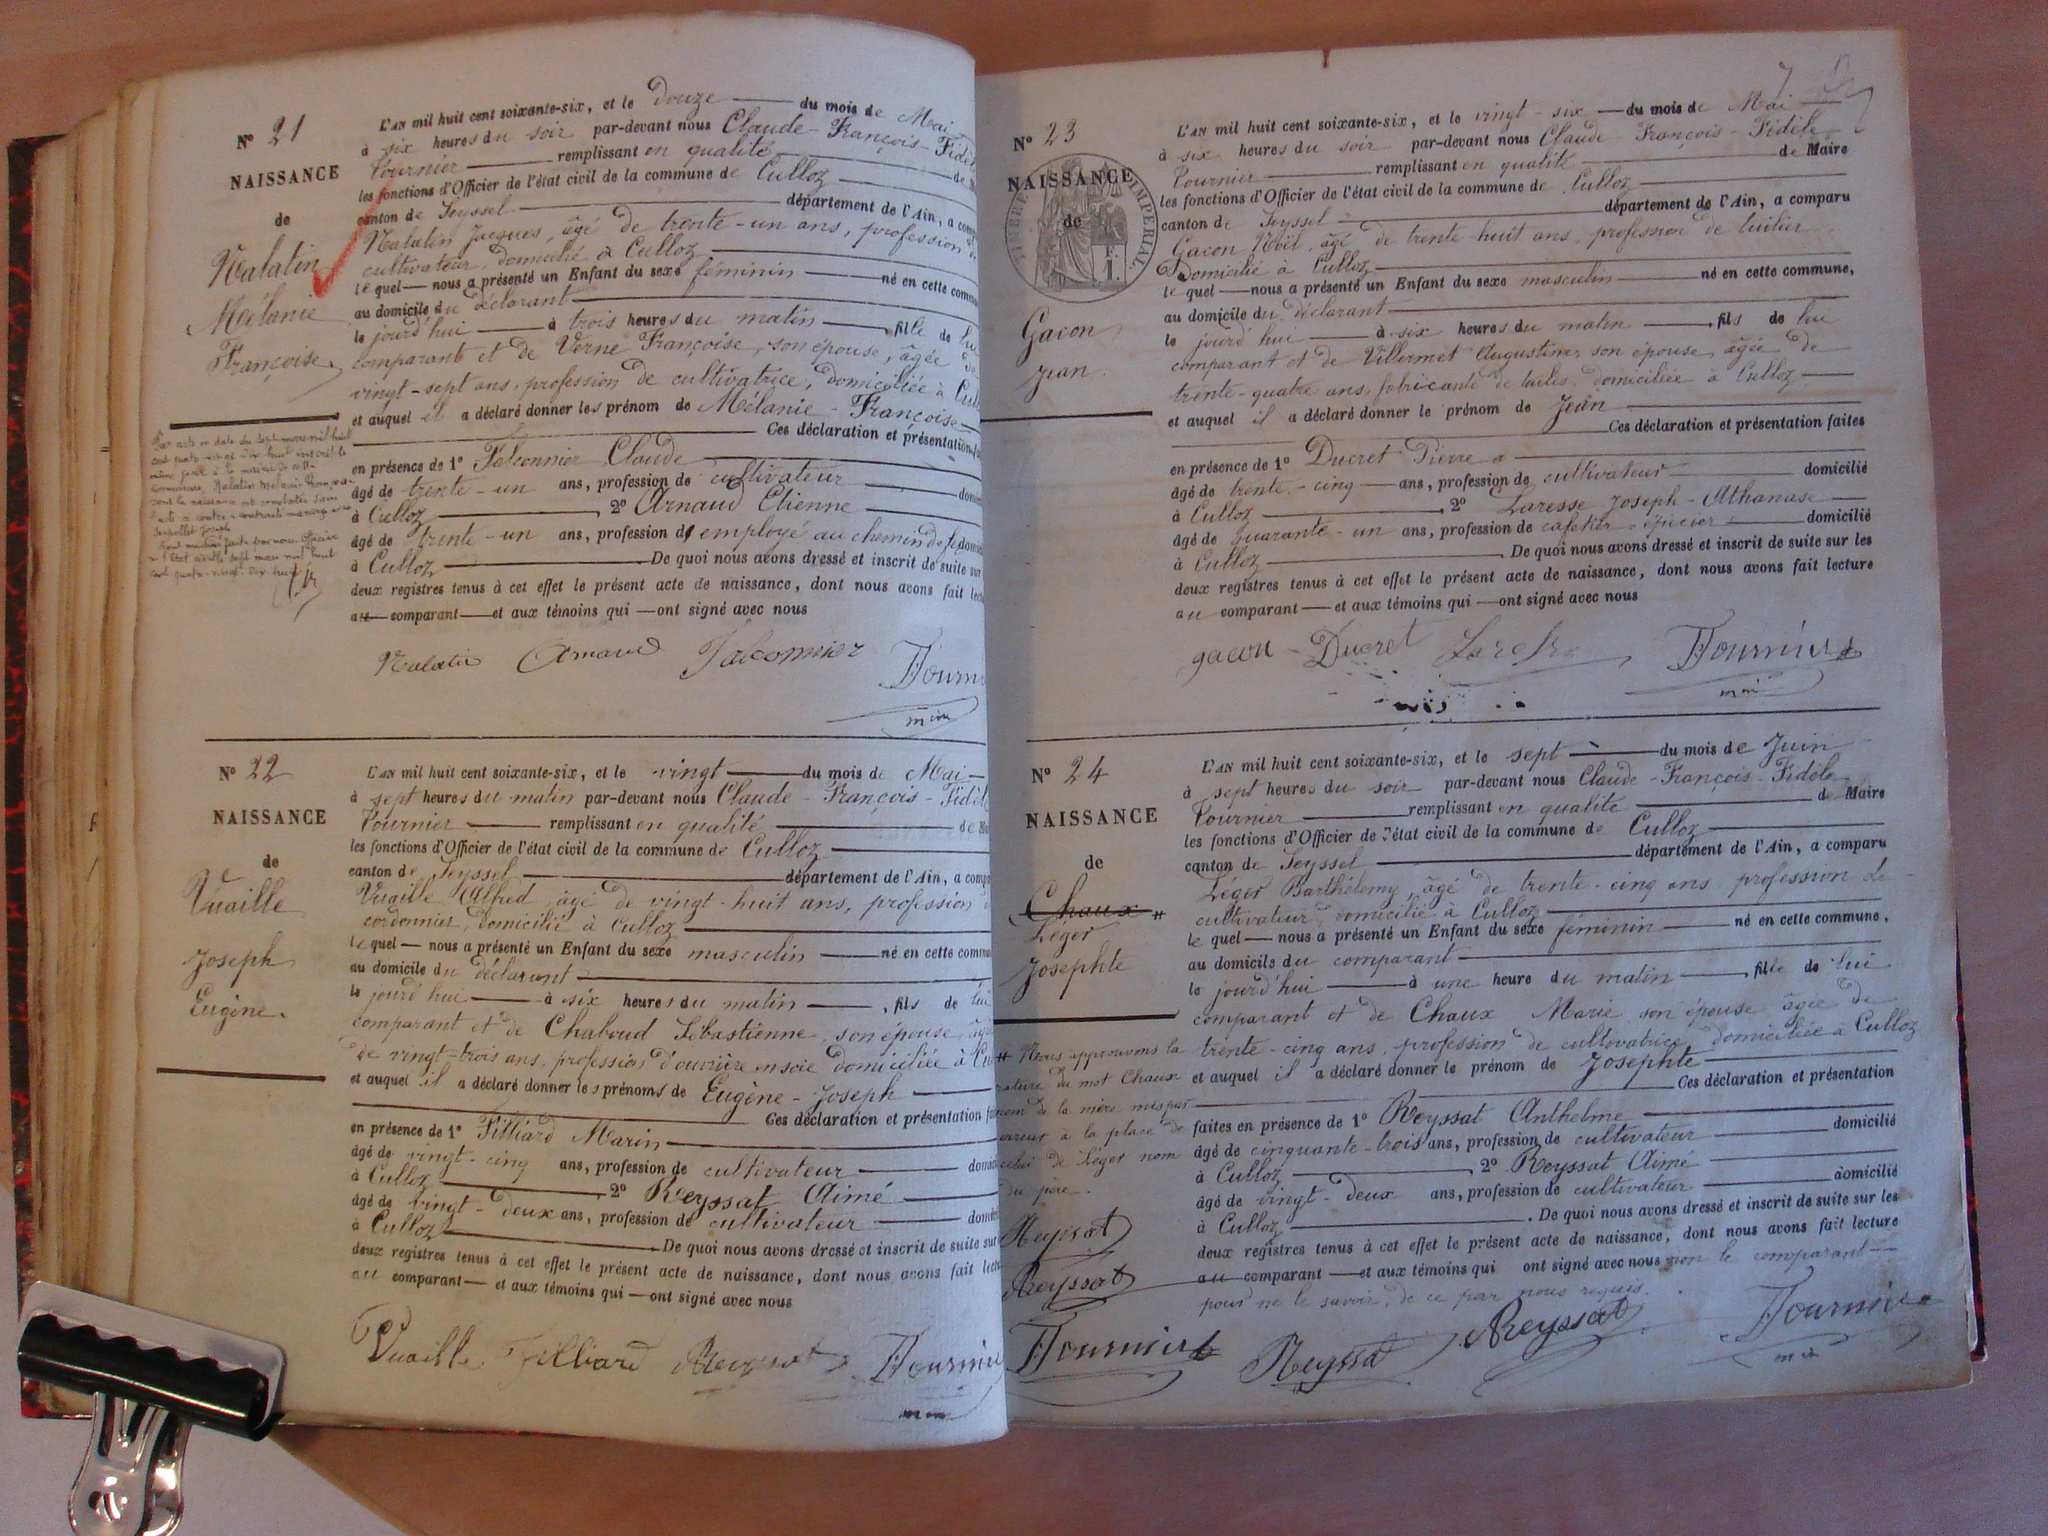 N° 21
NAISSANCE
de
Nalatin
Mélanie
Françoise.
L'AN mil huit cent soixante-six, et le douze du mois de Mai
à six heures du soir par-devant nous Claude-François-Fidèle
Fournier remplissant en qualité de
les fonctions d'Officier de l'état civil de la commune de Culloz
canton de Seyssel département de l'Ain, a
Nalatin Jacques, âgé de trente-un ans, profession
cultivateur, domicilié à Culloz
le quel nous a présenté un Enfant du sexe féminin né en cette
au domicile du déclarant
le jourd'hui à trois heures du matin, fille de lui
comparant et de Verne Françoise, son épouse, âgée de
vingt-sept ans, profession de cultivatrice, domiciliée à
et auquel il a déclaré donner les prénom de Mélanie-Françoise
Ces déclaration et présentation
en présence de 1° Falconnier Claude
âgé de trente-un ans, profession de cultivateur
à Culloz, 2° Arnaud Etienne
âgé de trente-un ans, profession d'employé au chemin de fer
à Culloz De quoi nous avons dressé et inscrit de suite sur
deux registres tenus à cet effet le présent acte de naissance, dont nous avons fait
au comparant et aux témoins qui ont signé avec nous
Nalatin Arnaud Falconnier Fournier
N° 22
NAISSANCE
de
Vuaille
Joseph
Eugène.
L'AN mil huit cent soixante-six, et le vingt du mois de Mai
à sept heures du matin par-devant nous Claude-François-Fidèle
Fournier remplissant en qualité de
les fonctions d'Officier de l'état civil de la commune de Culloz
canton de Seyssel département de l'Ain, a
Vuaille Alfred, âgé de vingt-huit ans, profession
cordonnier, domicilié à Culloz
le quel nous a présenté un Enfant du sexe masculin né en cette
au domicile du déclarant
le jourd'hui à six heures du matin, fils de lui
comparant et de Chaboud Sébastienne, son épouse,
de vingt-trois ans, profession d'ouvrière en soie domiciliée à
et auquel il a déclaré donner les prénoms de Eugène-Joseph
Ces déclaration et présentation
en présence de 1° Filliard Marin
âgé de vingt-cinq ans, profession de cultivateur
à Culloz, 2° Reyssat Aimé
âgé de vingt-deux ans, profession de cultivateur
à Culloz De quoi nous avons dressé et inscrit de suite sur
deux registres tenus à cet effet le présent acte de naissance, dont nous avons fait
au comparant et aux témoins qui ont signé avec nous
Vuaille Filliard Reyssat Fournier
7
N° 23
NAISSANCE
de
TIMBRE IMPERIAL
1 F.
Gacon
Jean.
L'AN mil huit cent soixante-six, et le vingt-six du mois de Mai
à six heures du soir par-devant nous Claude François-Fidèle
Fournier remplissant en qualité de Maire
les fonctions d'Officier de l'état civil de la commune de Culloz
canton de Seyssel département de l'Ain, a comparu
Gacon Noël, âgé de trente-huit ans, profession de tuilier
Domicilié à Culloz
le quel nous a présenté un Enfant du sexe masculin né en cette commune,
au domicile du déclarant
le jourd'hui à six heures du matin, fils de lui
comparant et de Villermet Augustine, son épouse, âgée de
trente-quatre ans, fabricante de tuiles, domiciliée à Culloz
et auquel il a déclaré donner le prénom de Jean
Ces déclaration et présentation faites
en présence de 1° Ducret Pierre
âgé de trente-cinq ans, profession de cultivateur domicilié
à Culloz 2° Laresse Joseph-Athanase
âgé de quarante-un ans, profession de cafetier-épicier domicilié
à Culloz. De quoi nous avons dressé et inscrit de suite sur les
deux registres tenus à cet effet le présent acte de naissance, dont nous avons fait lecture
au comparant et aux témoins qui ont signé avec nous
gacon Ducret Fournier
N° 24
NAISSANCE
de
Chaux #
Léger
Josephte
# Nous approuvons la
rature du mot Chaux
nom de la mère mis par
erreur à la place de
celui de Léger nom
du père.
Reyssat
Reyssat
Fournier
L'AN mil huit cent soixante-six, et le sept du mois de Juin
à sept heures du soir par-devant nous Claude-François-Fidèle
Fournier remplissant en qualité de Maire
les fonctions d'Officier de l'état civil de la commune de Culloz
canton de Seyssel département de l'Ain, a comparu
Léger Barthélemy, âgé de trente-cinq ans, profession de
cultivateur, domicilié à Culloz
le quel nous a présenté un Enfant du sexe féminin né en cette commune,
au domicile du comparant
le jourd'hui à une heure du matin, fille de lui
comparant et de Chaux Marie son épouse âgée de
trente-cinq ans, profession de cultivatrice, domiciliée à Culloz
et auquel il a déclaré donner le prénom de Josephte
Ces déclaration et présentation
faites en présence de 1° Reyssat Anthelme
âgé de cinquante-trois ans, profession de cultivateur domicilié
à Culloz, 2° Reyssat Aimé domicilié
âgé de vingt-deux ans, profession de cultivateur
à Culloz. De quoi nous avons dressé et inscrit de suite sur les
deux registres tenus à cet effet le présent acte de naissance, dont nous avons fait lecture
au comparant et aux témoins qui ont signé avec nous non le comparant
pour ne le savoir, de ce par nous requis.
Reyssat Reyssat Fournier